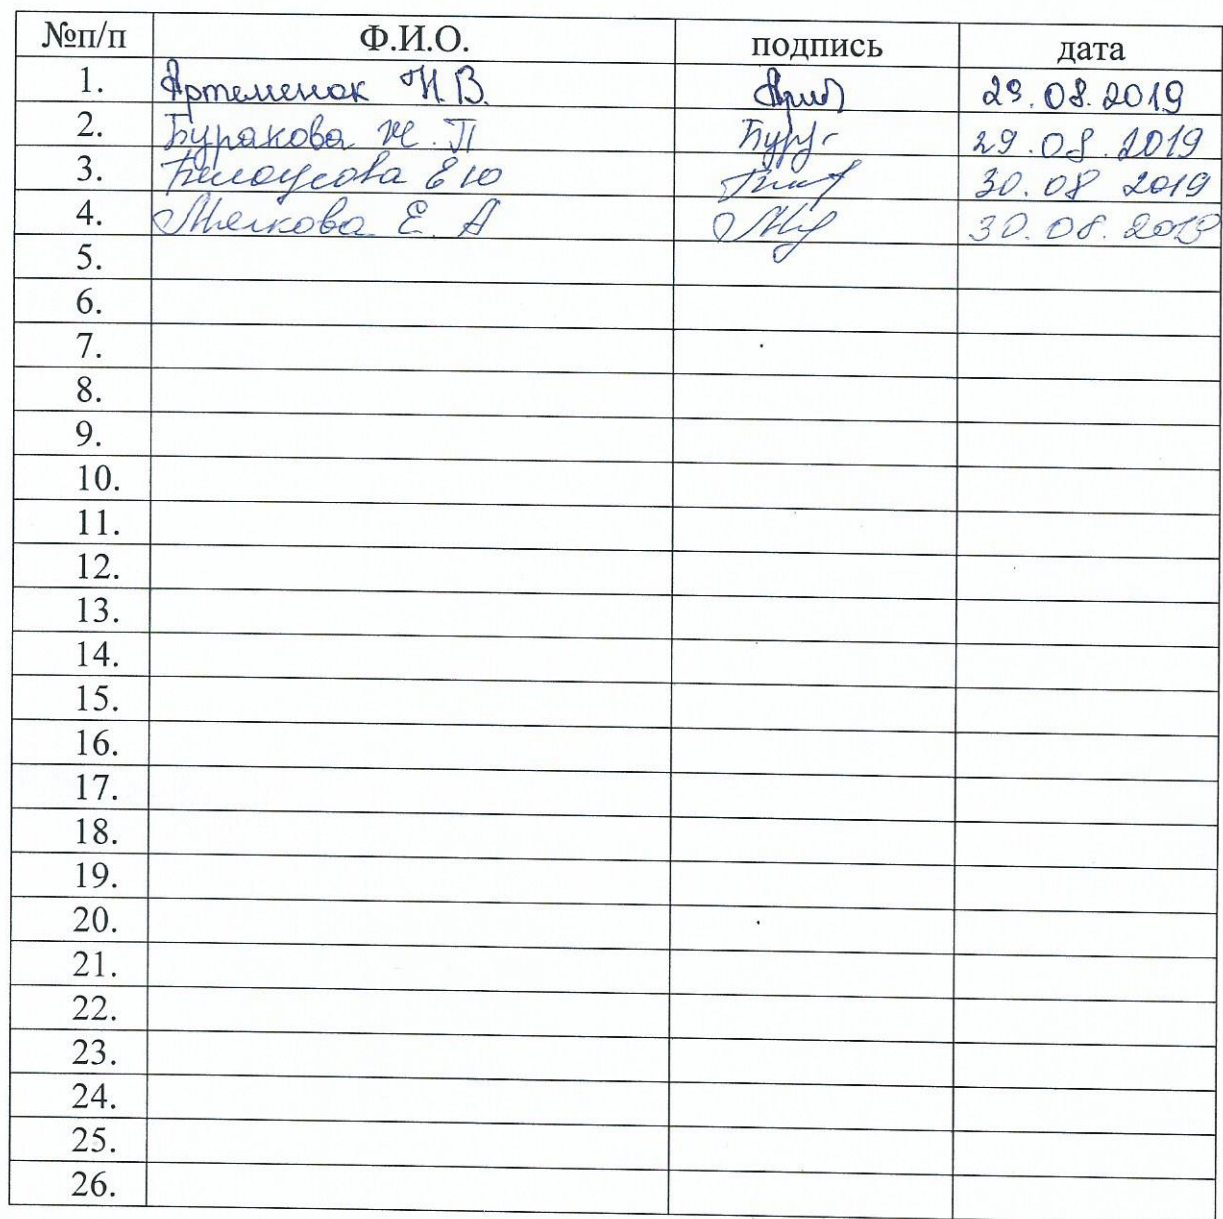 №п/п Ф.И.О. подпись дата
1. Артеменок Н.В. 29.08.2019
2. Буракова Ж.П 29.08.2019
3. Белоусова Е Ю 30.08 2019
4. Е. А 30.08.2019
5.
6.
7.
8.
9.
10.
11.
12.
13.
14.
15.
16.
17.
18.
19.
20.
21.
22.
23.
24.
25.
26.